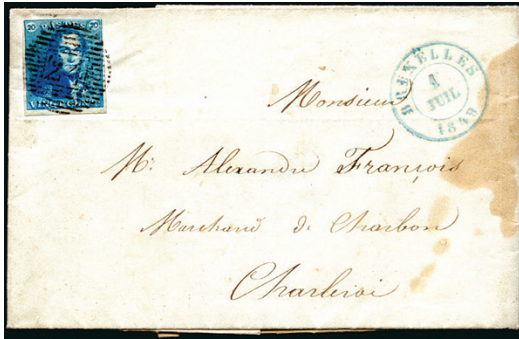 20 POSTES 20
24
VINGT CENTS
BRUXELLES
4
JUIL
1849
Monsieur
Mr. Alexandre François
Marchand de Charbon
Charleroi